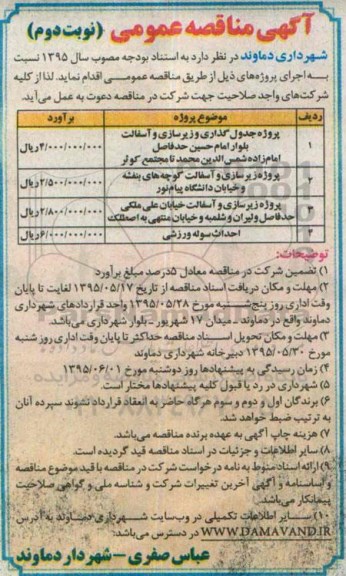 آگهی مناقصه عمومی (نوبت دوم)
شهرداری دماوند در نظر دارد به استناد بودجه مصوب سال ۱۳۹۵ نسبت
به اجرای پروژه‌های ذیل از طریق مناقصه عمومی اقدام نماید. لذا از کلیه
شرکت‌های واجد صلاحیت جهت شرکت در مناقصه دعوت به عمل می‌آید.
ردیف موضوع پروژه برآورد
۱ پروژه جدول گذاری و زیرسازی و آسفالت
بلوار امام حسین حدفاصل
امام‌زاده شمس الدین محمد تا مجتمع کوثر ۴/۰۰۰/۰۰۰/۰۰۰ریال
۲ پروژه زیرسازی و آسفالت کوچه‌های بنفشه
و خیابان دانشگاه پیام‌نور ۲/۵۰۰/۰۰۰/۰۰۰ریال
۳ پروژه زیرسازی و آسفالت خیابان علی ملکی
حدفاصل ولیران و شلمبه و خیابان منتهی به اصطلک ۲/۸۰۰/۰۰۰/۰۰۰ریال
۴ احداث سوله ورزشی ۶/۰۰۰/۰۰۰/۰۰۰ریال
توضیحات:
۱) تضمین شرکت در مناقصه معادل ۵درصد مبلغ برآورد
۲) مهلت و مکان دریافت اسناد مناقصه از تاریخ ۱۳۹۵/۰۵/۱۷ لغایت تا پایان
وقت اداری روز پنج‌شنبه مورخ ۱۳۹۵/۰۵/۲۸ واحد قراردادهای شهرداری
دماوند واقع در دماوند ـ میدان ۱۷ شهریور ـ بلوار شهرداری می‌باشد.
۳) مهلت و مکان تحویل اسناد مناقصه حداکثر تا پایان وقت اداری روز شنبه
مورخ ۱۳۹۵/۰۵/۳۰ دبیرخانه شهرداری دماوند
۴) زمان رسیدگی به پیشنهادها روز دوشنبه مورخ ۱۳۹۵/۰۶/۰۱
۵) شهرداری در رد یا قبول کلیه پیشنهادها مختار است.
۶) برندگان اول و دوم و سوم هر گاه حاضر به انعقاد قرارداد نشوند سپرده آنان
به ترتیب ضبط خواهد شد.
۷) هزینه چاپ آگهی به عهده برنده مناقصه می‌باشد.
۸) سایر اطلاعات و جزئیات در اسناد مناقصه قید گردیده است.
۹) ارائه اسناد منوط به نامه درخواست شرکت در مناقصه با قید موضوع مناقصه
و اساسنامه و آگهی آخرین تغییرات شرکت و شناسه ملی و گواهی صلاحیت
پیمانکار می‌باشد.
۱۰) سایر اطلاعات تکمیلی در وب‌سایت شهرداری دماوند به آدرس
WWW.DAMAVAND.IR در دسترس می‌باشد.
عباس صفری – شهردار دماوند